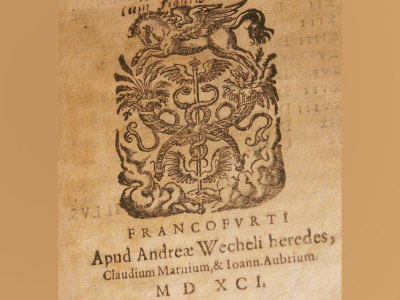 cum figuris
FRANCOFVRTI
Apud Andreæ Wecheli heredes,
Claudium Marnium, & Ioann. Aubrium.
M D XCI.